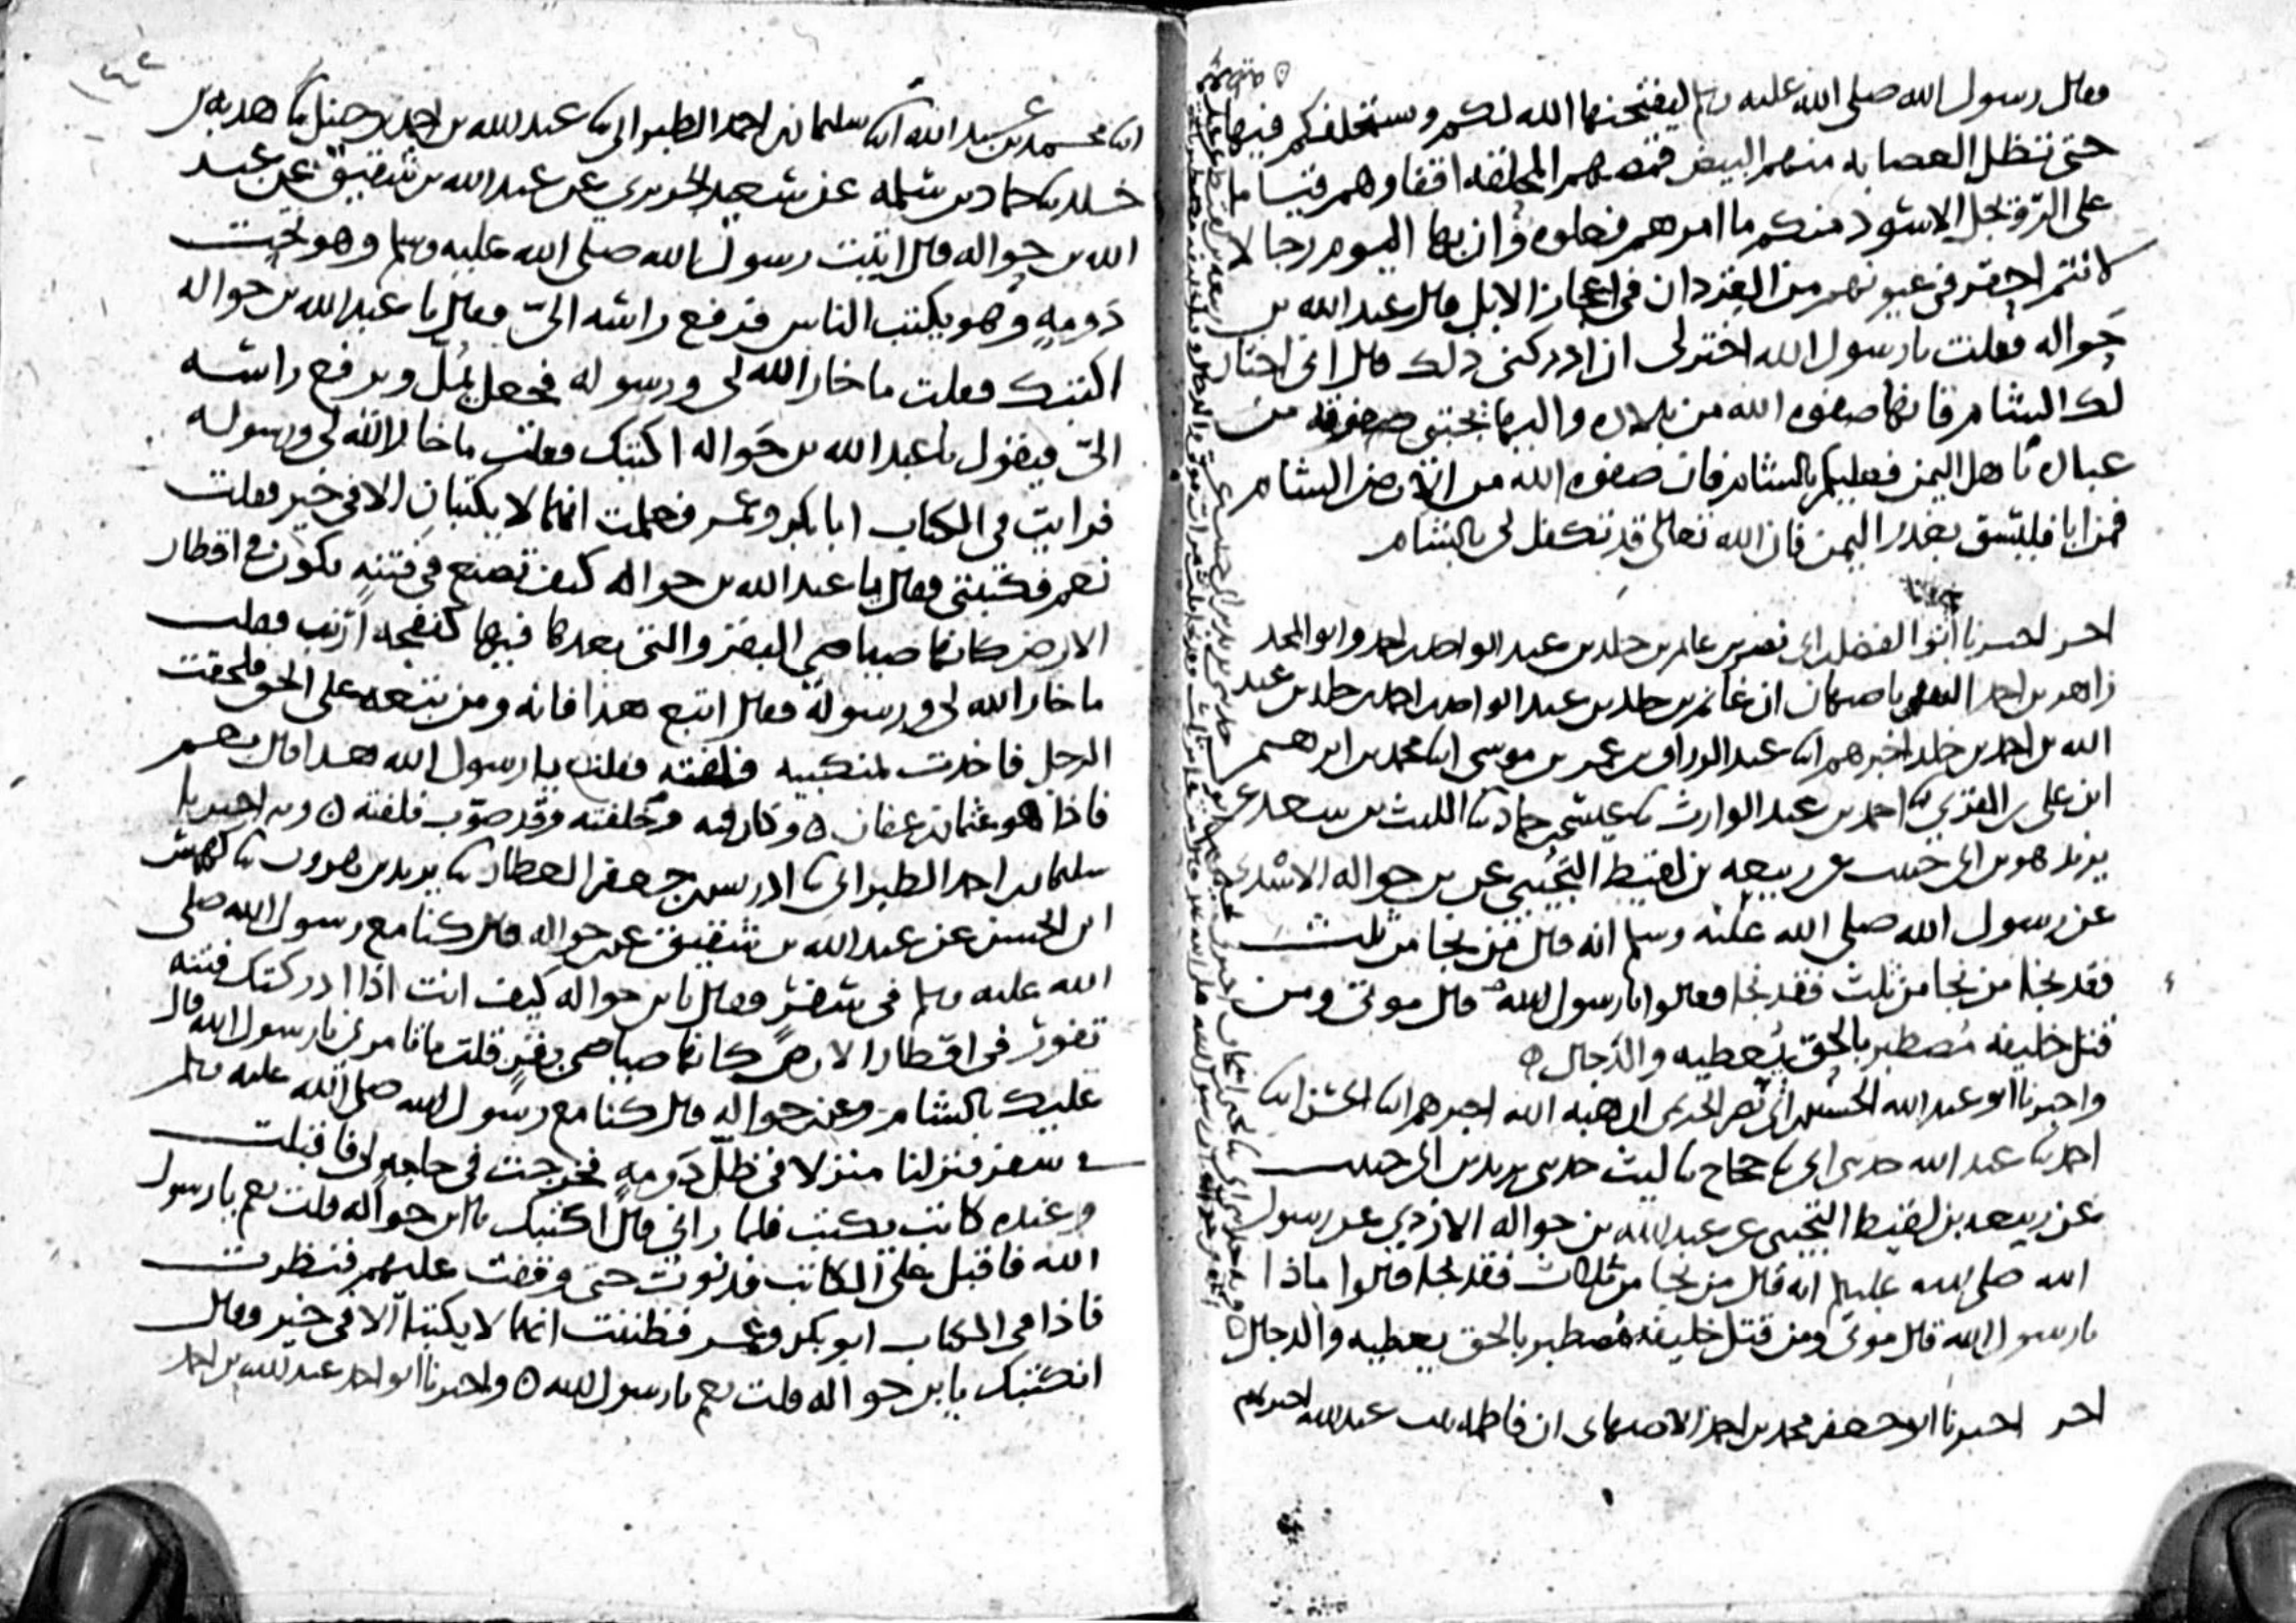 فقال رسول الله صلى الله عليه وسلم ليفتحنها الله لكم وستخلفكم فيها
حتى تظل العصابة منهم البيض قمصهم المحلقة اقفاوهم قياما
على الرويجل الاسود منكم ما امرهم فعلوه وان بها اليوم رجالا
لانتم احقر في عيونهم من القردان في اعجاز الابل قال عبد الله بن
حواله فقلت يا رسول الله اختر لي ان ادركني ذلك قال اني اختار
لك الشام فانها صفوه الله من بلاده واليها يجتبي صفوته من
عباده يا هل اليمن فعليكم بالشام فان صفوه الله من الارض الشام
فمن ابا فليسق بغدر اليمن فان الله تعالى قد تكفل لي بالشام
اخر اخبرنا ابو الفضل بن ابي نصر بن غانم بن خلد بن عبد الواحد بن احمد وابو المجد
زاهر بن احمد الثقفي باصبهان ان غانم بن خلد بن عبد الواحد بن احمد بن خلد بن عبد
الله بن احمد بن خلد اخبرهم ابنا عبد الرزاق بن عمر بن موسى ابنا محمد بن ابراهيم
ابن علي بن المقري ثنا احمد بن عبد الوارث ثنا عيسى بن حماد ثنا الليث بن سعد عن
يزيد هو بن ابي حبيب عن ربيعه بن لقيط التجيبي عن بن حواله الاسدي
عن رسول الله صلى الله عليه وسلم انه قال من نجا من ثلث
فقد نجا من نجا من ثلث فقد نجا فقالوا يا رسول الله قال موتي ومن
قتل خليفه مصطبر بالحق يعطيه والدجال
واخبرنا ابو عبد الله الحسين بن ابي نصر الحريمي ان هبه الله اخبرهم ابنا الحسن ابنا
احمد ثنا عبد الله حدثني ابي ثنا حجاج ثنا ليث حدثني يزيد بن ابي حبيب
عن ربيعه بن لقيط التجيبي عن عبد الله بن حواله الازدي عن رسول
الله صلى الله عليه وسلم انه قال من نجا من ثلاث فقد نجا قالوا ماذا
يا رسول الله قال موتي ومن قتل خليفه مصطبر بالحق يعطيه والدجال
اخر اخبرنا ابو جعفر محمد بن احمد الاصبهاني ان فاطمه بنت عبد الله اخبرتهم
١٤٢
ابنا محمد بن عبد الله ابنا سليمان بن احمد الطبراني ثنا عبد الله بن احمد بن حنبل ثنا هدبه بن
خلد ثنا حماد بن سلمه عن سعيد الجريري عن عبد الله بن شقيق عن عبد
الله بن حواله قال اتيت رسول الله صلى الله عليه وسلم وهو تحت
دومه وهو يكتب الناس فرفع راسه الي وقال يا عبد الله بن حواله
اكتبك فقلت ما خار الله لي ورسوله فجعل يمل ويرفع راسه
الي فيقول يا عبد الله بن حواله اكتبك فقلت ما خار الله لي ورسوله
فرايت في الكتاب ابا بكر وعمر فعلمت انهما لا يكتبان الا في خير فقلت
نعم فكتبني وقال يا عبد الله بن حواله كيف تصنع في فتنه تكون في اقطار
الارض كانها صياصي البقر والتي بعدها فيها كنفجه ارنب فقلت
ما خار الله لي ورسوله فقال اتبع هذا فانه ومن يتبعه على الحق فلحقت
الرجل فاخذت بمنكبيه فلفته فقلت يا رسول الله هذا قال نعم
فاذا هو عثمان بن عفان
سليمان بن احمد الطبراني ثنا ادريس بن جعفر العطار ثنا يزيد بن هرون ثنا كهمس
ابن الحسن عن عبد الله بن شقيق عن بن حواله قال كنا مع رسول الله صلى
الله عليه وسلم في سفر وقال يا بن حواله كيف انت اذا ادركتك فتنه
تفور في اقطار الارض كانها صياصي بقر قلت ما تامرني يا رسول الله قال
عليك بالشام وعن بن حواله قال كنا مع رسول الله صلى الله عليه وسلم
في سفر فنزلنا منزلا في ظل دومه فخرجت في حاجه لي فاقبلت
وعنده كاتب يكتب فلما راني قال اكتبك يا ابن حواله قلت نعم يا رسول
الله فاقبل على الكاتب فدنوت حتى وقفت عليهم فنظرت
فاذا في الكتاب ابو بكر وعمر فظننت انهما لا يكتبا الا في خير وقال
انكتبك يا بن حواله قلت نعم يا رسول الله واخبرنا ابو احمد عبد الله بن احمد